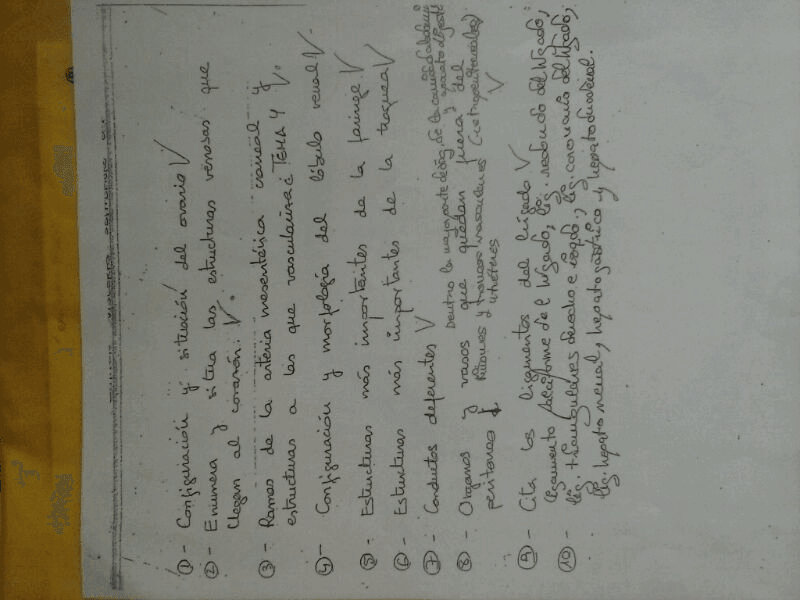 ① - Configuración y situación del ovario V
② - Enumera y situa las estructuras venosas que
llegan al corazón. V.
③ - Ramas de la arteria mesentérica craneal y
estructuras a las que vasculariza ¿TEMA 4? V.
④ - Configuración y morfología del lóbulo renal V.
⑤ - Estructuras más importantes de la faringe V
⑥ - Estructuras más importantes de la traquea V
⑦ - Conductos deferentes V
Dentro la mayor parte de órg. de la cavidad abdominal y aparato digest
⑧ - Organos y vasos que quedan fuera del
peritoneo
Riñones y troncos vasculares (retroperitoneales)
uréteres V
⑨ - Cita los ligamentos del hígado V
⑩ - ligamento falciforme del hígado, lig. redondo del hígado,
lig. triangulares derecho e izqdo., lig. coronario del hígado,
lig. hepatorrenal, hepatogástrico y hepatoduodenal.